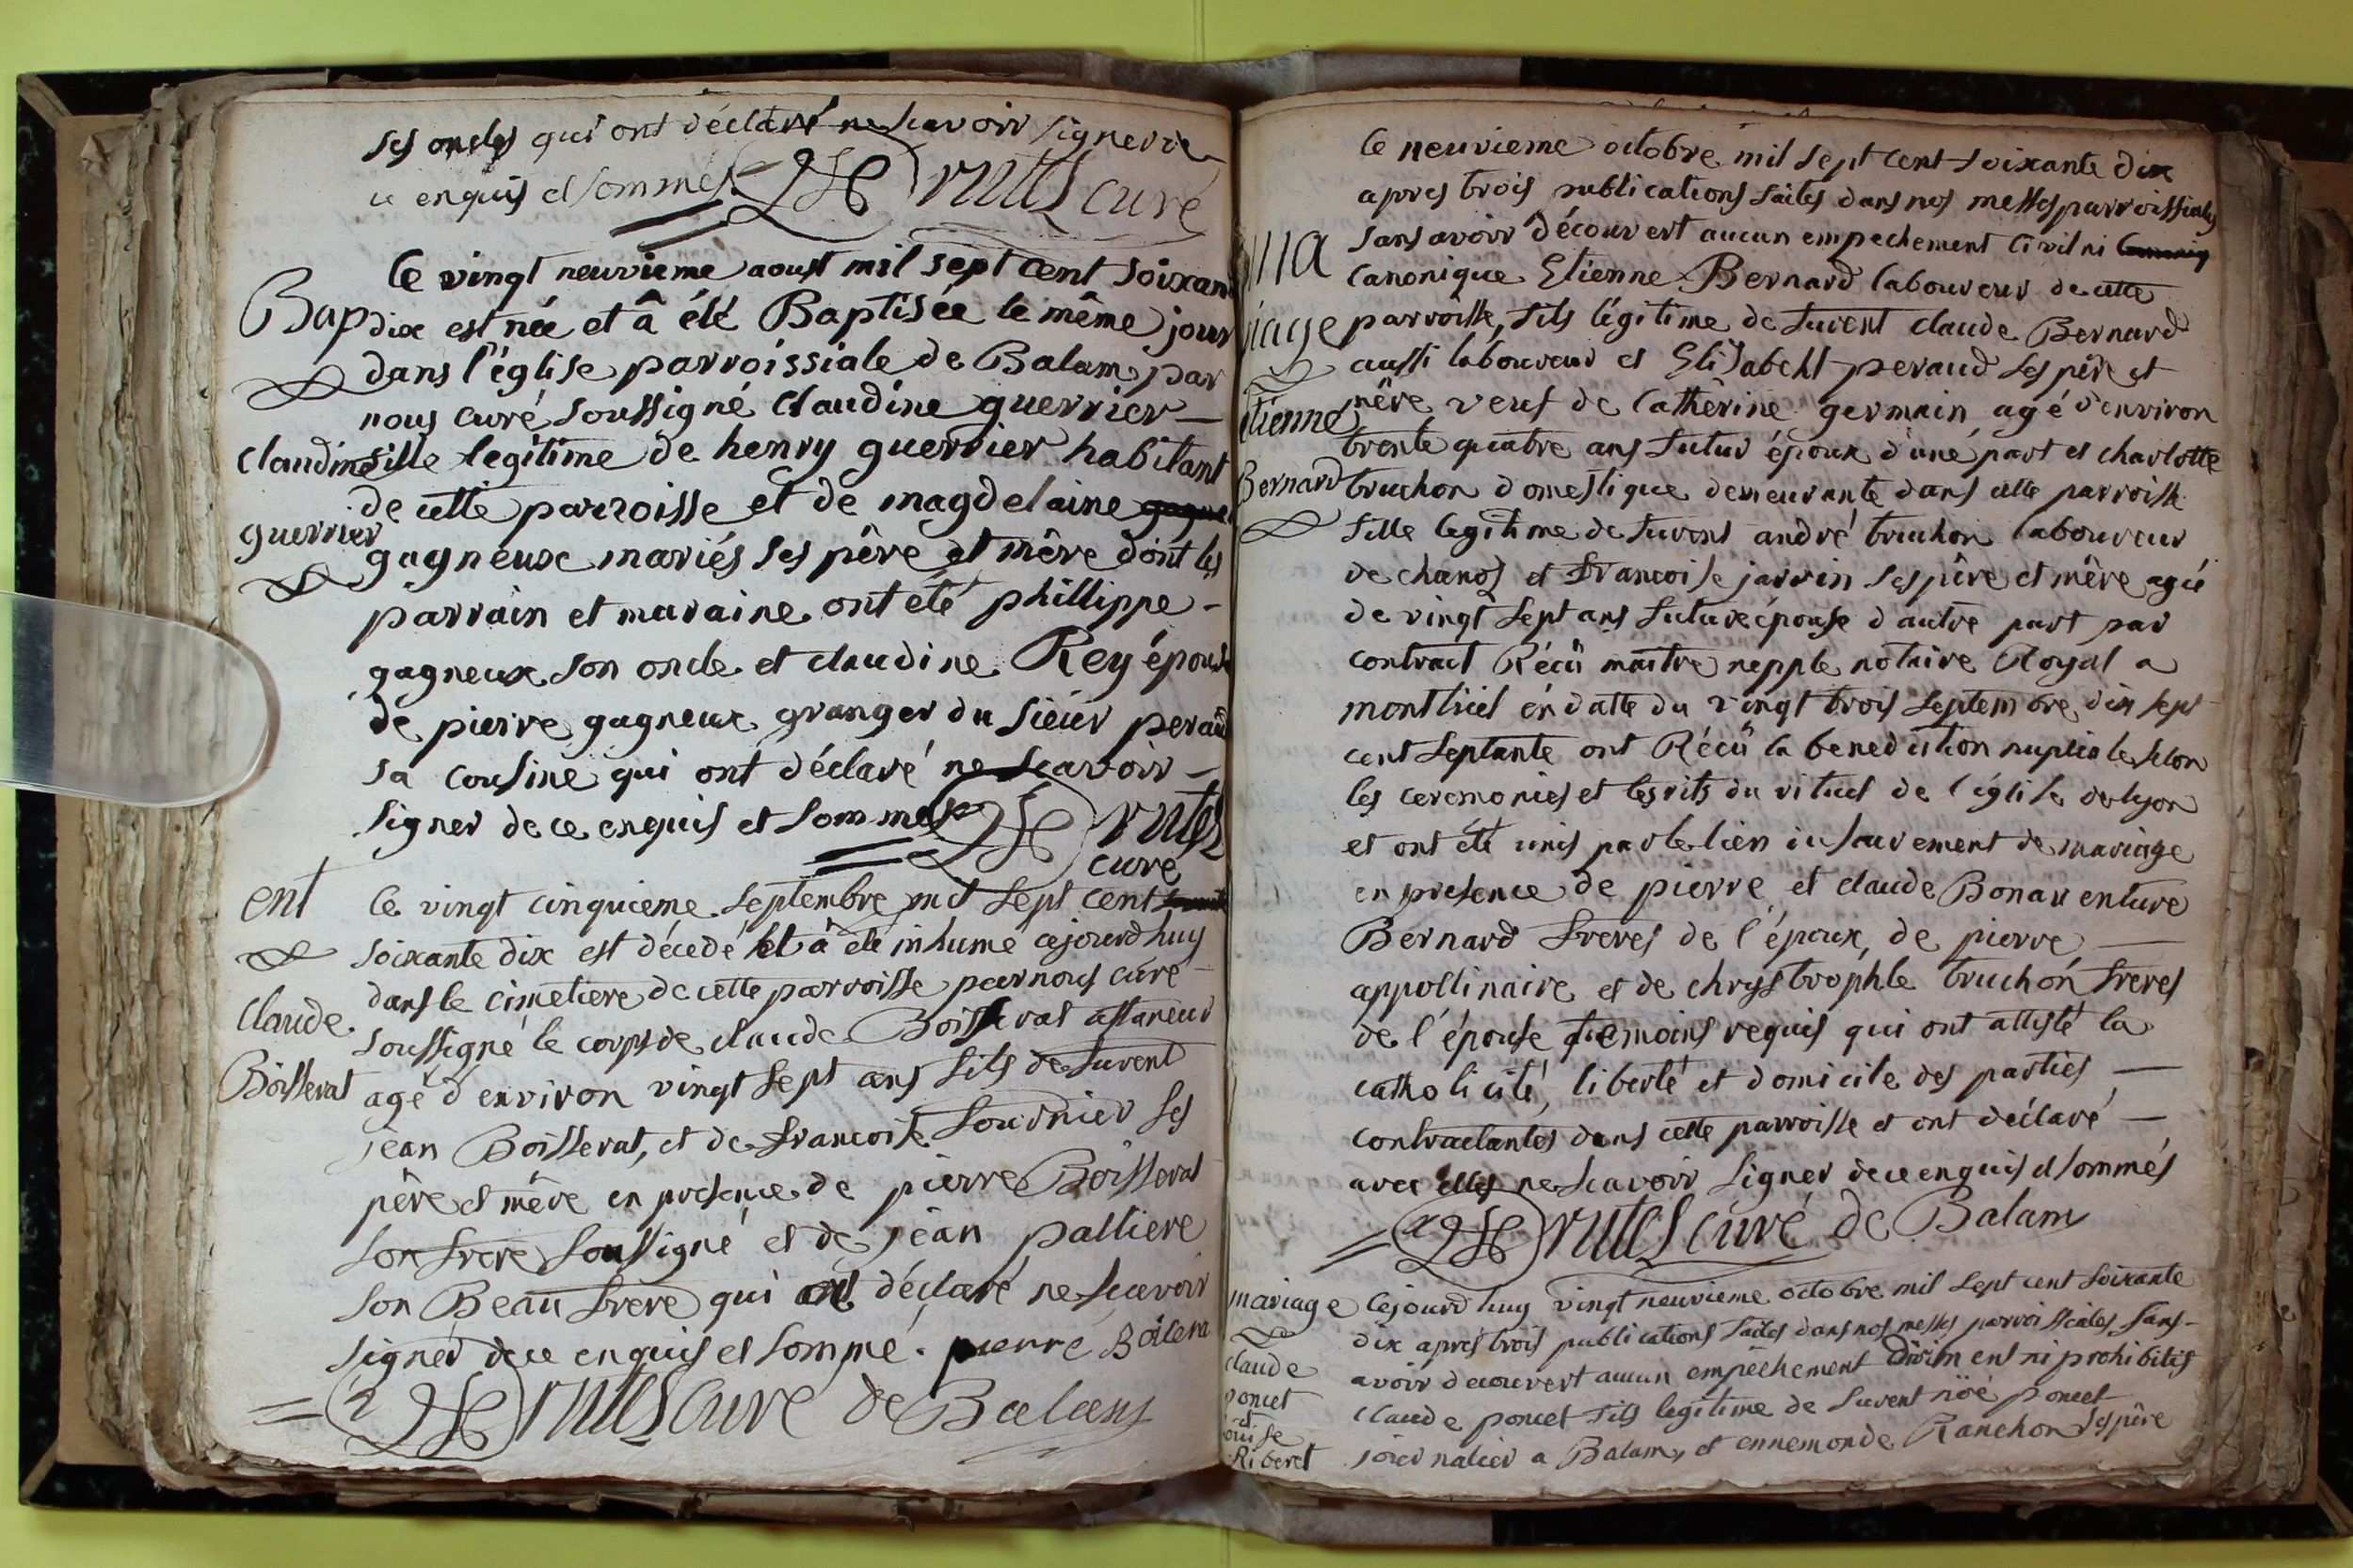 ses oncles qui ont déclaré ne scavoir signer de
ce enquis et sommés
curé
le vingt neuvieme aoust mil sept cent soixan
Bap
dix est née et â été Baptisée le même jour
dans l'église parroissiale de Balam par
nous curé soussigné claudine guerrier
claudine
fille legitime de henry guerrier habitant
de cette parroisse et de magdelaine
guerrier
gagneux mariés ses pêre et mêre dont les
parrain et maraine ont eté phillippe
gagneux son oncle et claudine Rey épouse
de pierre gagneux granger du sieur peraud
sa cousine qui ont déclaré ne scavoir
signer de ce enquis et sommés
curé
ent
le vingt cinquieme septembre mil sept cent
soixante dix est décedé et â eté inhumé cejourdhuy
dans le cimetiere de cette parroisse par nous curé
claude
soussigné le corps de claude Boisserat affaneur
Boisserat
agé d'environ vingt sept ans fils de furent
jean Boisserat, et de francoise fournier ses
pêre et mêre en presence de pierre Boisserat
son frere soussigné et de jean palliere
son Beau frere qui ont déclaré ne scavoir
signer de ce enquis et sommé. pierre
curé de Balam
le neuvieme octobre mil sept cent soixante dix
apres trois publications faites dans nos messes parroissiales
sans avoir découvert aucun empechement civil ni
Ma
canonique Etienne Bernard laboureur de cette
riage
parroisse, fils légitime de furent claude Bernard
aussi laboureur et Elisabeht peraud ses pêre et
etienne
mêre veuf de Cathêrine germain agé d'environ
trente quatre ans futur époux d'une part et charlotte
Bernard
truchon domestique demeurante dans cette parroisse
fille legitime de furent andré truchon laboureur
de chanos et francoise jarrin ses pêre et mêre agée
de vingt sept ans future épouse d'autre part par
contract Récû maitre nepple notaire Royal a
montluel en datte du vingt trois septembre dix sept
cent septante ont Récû la benediction nuptiale selon
les ceremonies et les rits du rituel de l'église de lyon
et ont été unis par le lien du sacrement de mariage
en presence de pierre et claude Bonaventure
Bernard freres de l'époux, de pierre
appollinaire et de chrystrophle truchon freres
de l'épouse temoins requis qui ont attesté la
catholicité, liberté et domicile des parties
contractantes dans cette parroisse et ont déclaré
avec elles ne scavoir signer de ce enquis et sommés
curé de Balam
mariage
cejourdhuy vingt neuvieme octobre mil sept cent soixante
dix aprés trois publications faites dans nos messes parroissiales sans
claude
avoir decouvert aucun empêchement dirimant ni prohibitif
poncet
claude poncet fils legitime de furent nöé poncet
et
louise
journalier a Balam, et ennemonde Ranchon ses pêre
Riberet